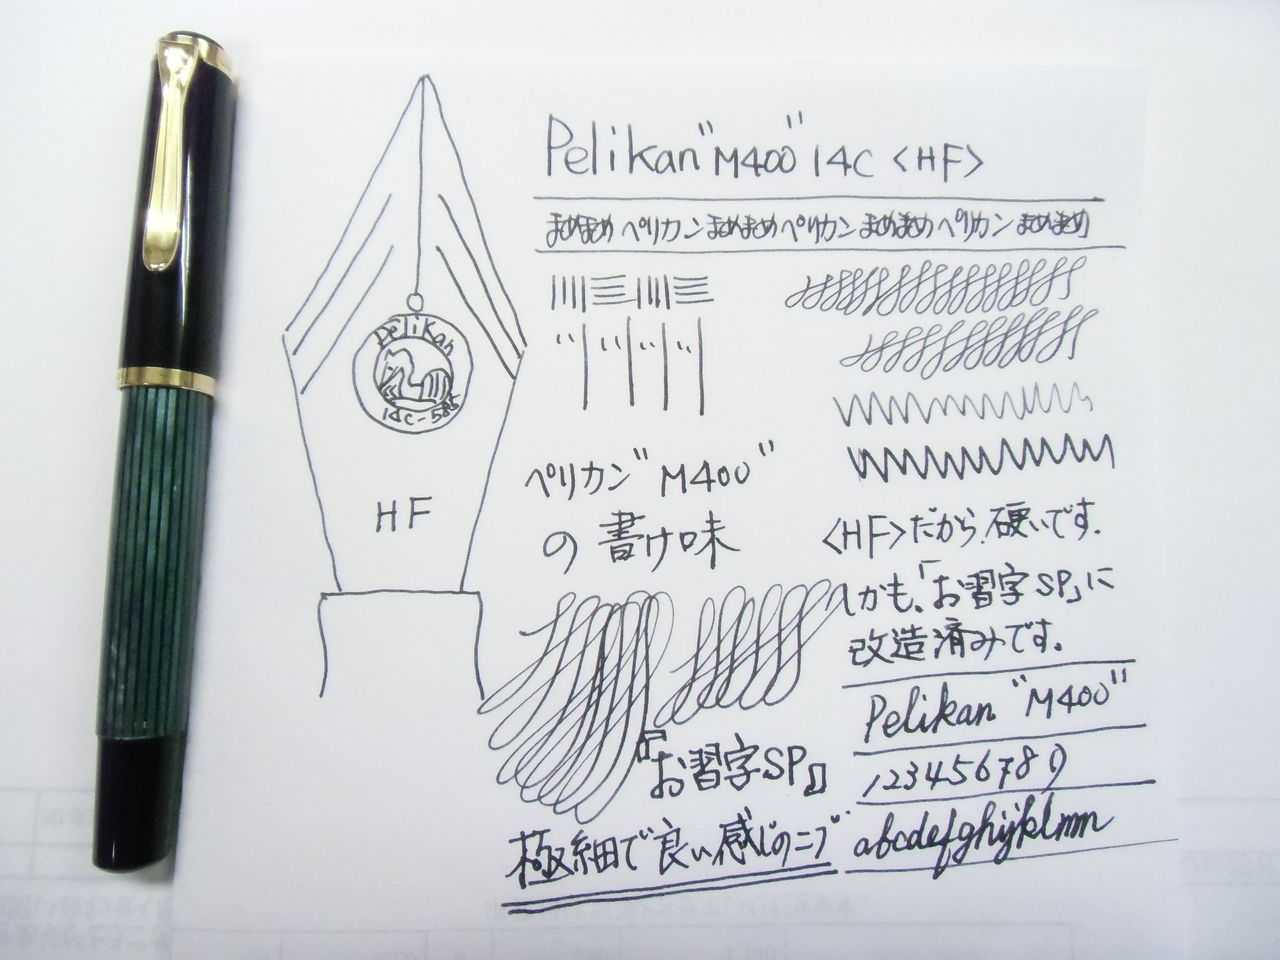 Pelikan "M400" 14C <HF>
まめまめ ペリカン まめまめ ペリカン まめまめ ペリカン まめまめ
Pelikan
14C-585
HF
ペリカン "M400"
の 書け味
<HF>だから、硬いです.
しかも、「お習字SP」に
改造済みです。
Pelikan "M400"
123456789
abcdefghijklmn
『お習字SP』
極細で良い感じのニブ